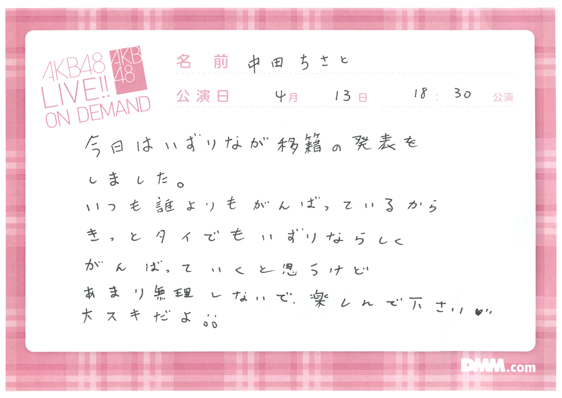 AKB48
LIVE!!
ON DEMAND
AKB
48
名前 中田ちさと
公演日 4月 13日 18:30 公演
今日はいずりなが移籍の発表を
しました。
いつも誰よりもがんばっているから
きっとタイでもいずりなならしく
がんばっていくと思うけど
あまり無理しないで、楽しんで下さい
大スキだよ
DMM.com